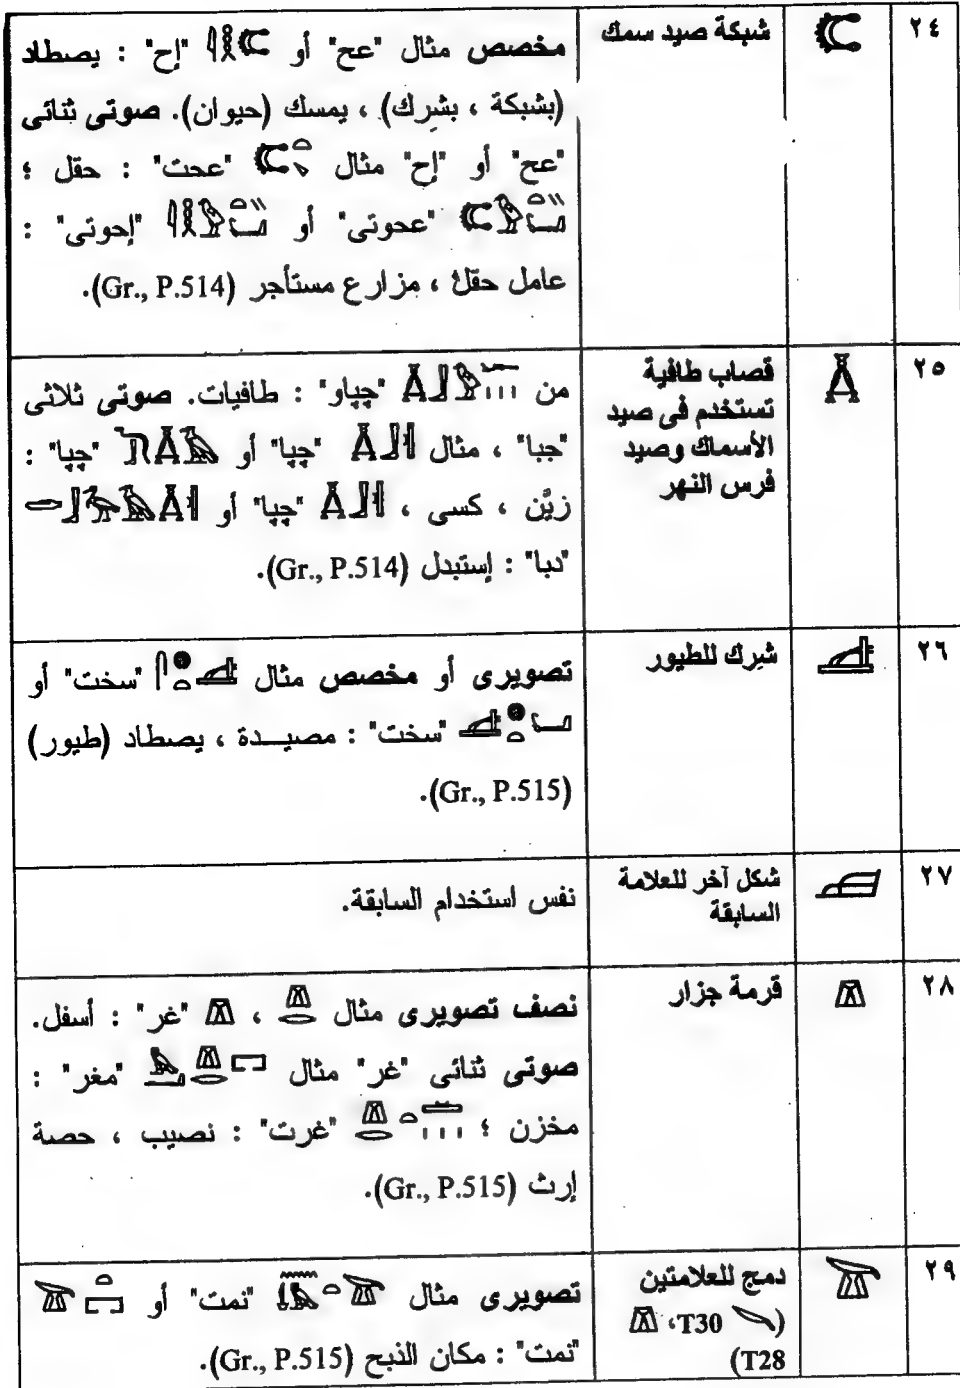 ٢٤
شبكة صيد سمك
مخصص مثال "عح" أو 𓌙𓎛𓇋 "إح" : يصطاد
(بشبكة ، بشرك) ، يمسك (حيوان). صوتى ثنائى
"عح" أو "إح" مثال "عحت" : حقل ؛
"عحوتى" أو "إحوتى" :
عامل حقل ، مزارع مستأجر (Gr., P.514).
٢٥
قصاب طافية
تستخدم فى صيد
الأسماك وصيد
فرس النهر
من "چباو" : طافيات. صوتى ثلاثى
"جبا" ، مثال "چبا" أو "چبا" :
زيَّن ، كسى ، "چبا" أو
"دبا" : إستبدل (Gr., P.514).
٢٦
شرك للطيور
تصويرى أو مخصص مثال "سخت" أو
"سخت" : مصيدة ، يصطاد (طيور)
(Gr., P.515).
٢٧
شكل آخر للعلامة
السابقة
نفس استخدام السابقة.
٢٨
قرمة جزار
نصف تصويرى مثال ، "غر" : أسفل.
صوتى ثنائى "غر" مثال "مغر" :
مخزن ؛ "غرت" : نصيب ، حصة
إرث (Gr., P.515).
٢٩
دمج للعلامتين
(T30 ،
T28)
تصويرى مثال "نمت" أو
"نمت" : مكان الذبح (Gr., P.515).